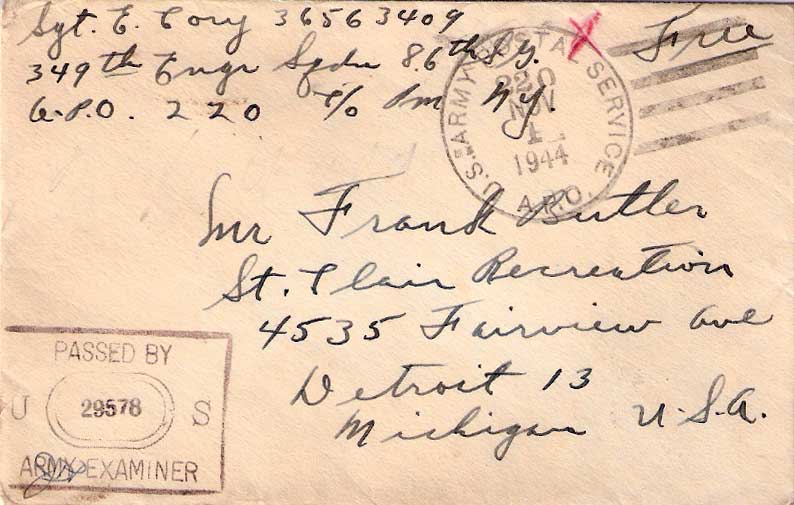 Sgt. E. Cory 36563409
349th Engr Sqdn 86th F.G.
A.P.O. 220 c/o Pm NY.
Free
U.S. ARMY POSTAL SERVICE
230
NOV
1
1944
A.P.O.
Mr Frank Butler
St. Clair Recreation
4535 Fairview Ave
Detroit 13
Michigan U.S.A.
PASSED BY
U 29578 S
ARMY EXAMINER